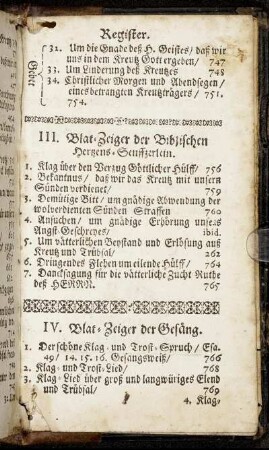 Register.
32. Um die Gnade deß H. Geistes / daß wir
uns in dem Kreutz Gott ergeben / 747
33. Um Linderung deß Kreutzes 748
34. Christlicher Morgen und Abendsegen /
eines betrangten Kreutzträgers / 751.
754.
III. Blat-Zeiger der Biblischen
Hertzens-Seufftzerlein.
1. Klag über den Verzug Göttlicher Hülff / 756
2. Bekantnus / daß wir das Kreutz mit unsern
Sünden verdienet / 759
3. Demütige Bitt / um gnädige Abwendung der
wolverdienten Sünden Straffen 760
4. Ansuchen / um gnädige Erhörung unsers
Angst-Geschreyes / ibid.
5. Um vätterlichen Beystand und Erlösung auß
Kreutz und Trübsal / 262
6. Dringendes Flehen um eilende Hülff / 764
7. Dancksagung für die vätterliche Zucht-Ruthe
deß HERRN. 765
IV. Blat-Zeiger der Gesäng.
1. Der schöne Klag- und Trost-Spruch / Esa.
49 / 14. 15. 16. Gesangsweiß / 766
2. Klag- und Trost-Lied / 768
3. Klag-Lied über groß und langwüriges Elend
und Trübsal / 769
4. Klag-